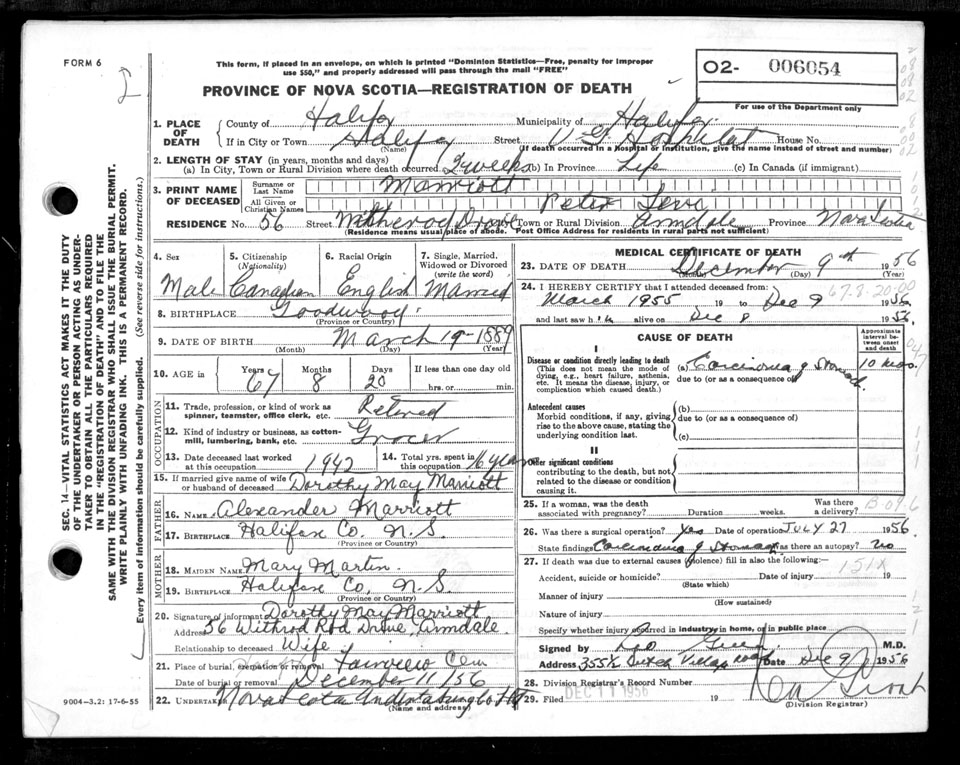 FORM 6
This form, if placed in an envelope, on which is printed "Dominion Statistics—Free, penalty for improper
use $50," and properly addressed will pass through the mail "FREE"
O2- 006054
For use of the Department only
PROVINCE OF NOVA SCOTIA—REGISTRATION OF DEATH
1. PLACE OF DEATH
County of Halifax Municipality of Halifax
If in City or Town Halifax Street V. G. Hospital House No.
(Name) (If death occurred in a hospital or institution, give the name instead of street and number)
2. LENGTH OF STAY (in years, months and days)
(a) In City, Town or Rural Division where death occurred 2 weeks (b) In Province Life (c) In Canada (if immigrant)
3. PRINT NAME OF DECEASED
Surname or Last Name Marriott
All Given or Christian Names Peter
RESIDENCE No. 56 Street Drive Town or Rural Division Armdale Province Nova Scotia
(Residence means usual place of abode. Post Office Address for residents in rural parts not sufficient)
4. Sex Male
5. Citizenship (Nationality) Canadian
6. Racial Origin English
7. Single, Married, Widowed or Divorced (write the word) Married
8. BIRTHPLACE Goodwood
(Province or Country)
9. DATE OF BIRTH March 19 - 1889
(Month) (Day) (Year)
10. AGE Years 67 Months 8 Days 20 If less than one day old hrs. or min.
OCCUPATION
11. Trade, profession, or kind of work as spinner, teamster, office clerk, etc. Retired
12. Kind of industry or business, as cotton-mill, lumbering, bank, etc. Grocer
13. Date deceased last worked at this occupation 1942
14. Total yrs. spent in this occupation 16 years
15. If married give name of wife or husband of deceased Dorothy May Marriott
FATHER
16. NAME Alexander Marriott
17. BIRTHPLACE Halifax Co. N.S.
(Province or Country)
MOTHER
18. MAIDEN NAME Mary Martin
19. BIRTHPLACE Halifax Co. N.S.
(Province or Country)
20. Signature of informant Dorothy May Marriott
Address 56 Withrod Drive, Armdale.
Relationship to deceased Wife
21. Place of burial, cremation or removal Fairview Cem
Date of burial or removal December 11/56
22. UNDERTAKER Nova Scotia Undertaking Co.
(Name and address)
9004-3.2: 17-6-55
MEDICAL CERTIFICATE OF DEATH
23. DATE OF DEATH December 9th 1956
(Month) (Day) (Year)
24. I HEREBY CERTIFY that I attended deceased from:
March 1955, 19 to Dec 9 1956
and last saw him alive on Dec 8 1956.
67-8-20-00
CAUSE OF DEATH
Approximate interval between onset and death
I
Disease or condition directly leading to death
(This does not mean the mode of dying, e.g., heart failure, asthenia, etc. It means the disease, injury, or complication which caused death.)
(a) Carcinoma of Stomach 10 mos.
due to (or as a consequence of)
Antecedent causes
Morbid conditions, if any, giving rise to the above cause, stating the underlying condition last.
(b)
due to (or as a consequence of)
(c)
II
Other significant conditions
contributing to the death, but not related to the disease or condition causing it.
25. If a woman, was the death associated with pregnancy? Duration weeks. Was there a delivery?
26. Was there a surgical operation? yes Date of operation JULY 27 1956
State findings Carcinoma of Stomach Was there an autopsy? no
27. If death was due to external causes (violence) fill in also the following:
151X
Accident, suicide or homicide? Date of injury 19
(State which)
Manner of injury
(How sustained)
Nature of injury
Specify whether injury occurred in industry, in home, or in public place
Signed by M.D.
Address 355½ Dutch Village Road Date Dec 9 1956
28. Division Registrar's Record Number
29. Filed DEC 11 1956 19
(Division Registrar)
SEC. 14—VITAL STATISTICS ACT MAKES IT THE DUTY
OF THE UNDERTAKER OR PERSON ACTING AS UNDER-
TAKER TO OBTAIN ALL THE PARTICULARS REQUIRED
IN THE "REGISTRATION OF DEATH" AND TO FILE THE
SAME WITH THE DIVISION REGISTRAR WHO SHALL ISSUE THE BURIAL PERMIT.
WRITE PLAINLY WITH UNFADING INK. THIS IS A PERMANENT RECORD.
Every item of information should be carefully supplied. (See reverse side for instructions.)